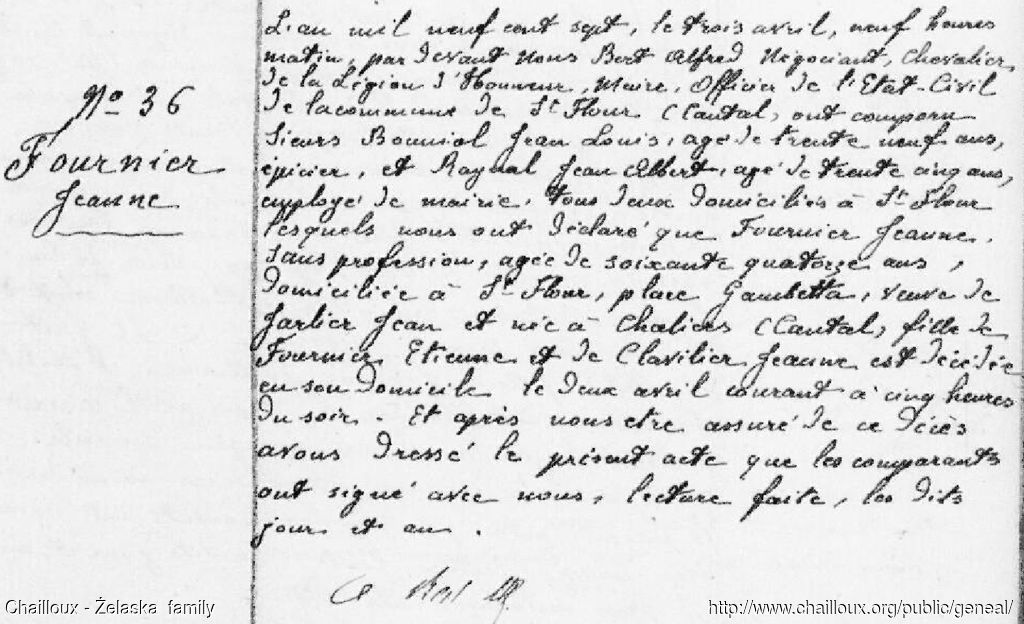 No 36
Fournier
Jeanne
L'an mil neuf cent sept, le trois avril, neuf heures
matin, par devant nous Bert Alfred Négociant, Chevalier
de la Légion d'Honneur, Maire, Officier de l'Etat-Civil
de la commune de St Flour (Cantal, ont comparu
Sieurs Bouniol Jean Louis, agé de trente neuf ans,
épicier, et Raynal Jean Albert, agé de trente cinq ans,
employé de mairie, tous deux domiciliés à St Flour
lesquels nous ont déclaré que Fournier Jeanne,
sans profession, agée de soixante quatorze ans,
domiciliée à St Flour, place Gambetta, veuve de
Jarlier Jean et née à Chaliers (Cantal, fille de
Fournier Etienne et de Clavilier Jeanne est décédée
en son domicile le deux avril courant à cinq heures
du soir. Et après nous etre assuré de ce décès
avons dressé le présent acte que les comparants
ont signé avec nous, lecture faite, les dits
jour et an.
Chailloux - Želaska family
http://www.chailloux.org/public/geneal/